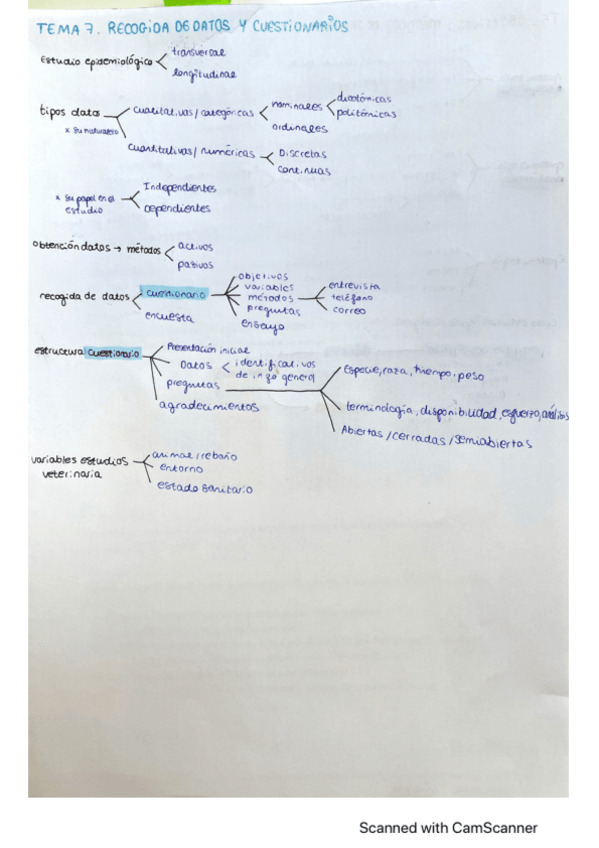 TEMA 7. RECOGIDA DE DATOS Y CUESTIONARIOS
Estudio epidemiológico
transversal
longitudinal
tipos datos
x su naturaleza
cualitativas/categóricas
nominales
dicotómicas
politómicas
ordinales
cuantitativas/numéricas
Discretas
continuas
x su papel en el
estudio
Independientes
Dependientes
obtención datos → métodos
activos
pasivos
recogida de datos
cuestionario
objetivos
variables
métodos
preguntas
ensayo
entrevista
teléfono
correo
encuesta
estructura cuestionario
Presentación inicial
Datos
identificativos
de info general
preguntas
Especie, raza, tiempo, peso
terminología, disponibilidad, esfuerzo, análisis
Abiertas/cerradas/semiabiertas
agradecimientos
variables estudios
veterinaria
animal/rebaño
entorno
estado sanitario
Scanned with CamScanner